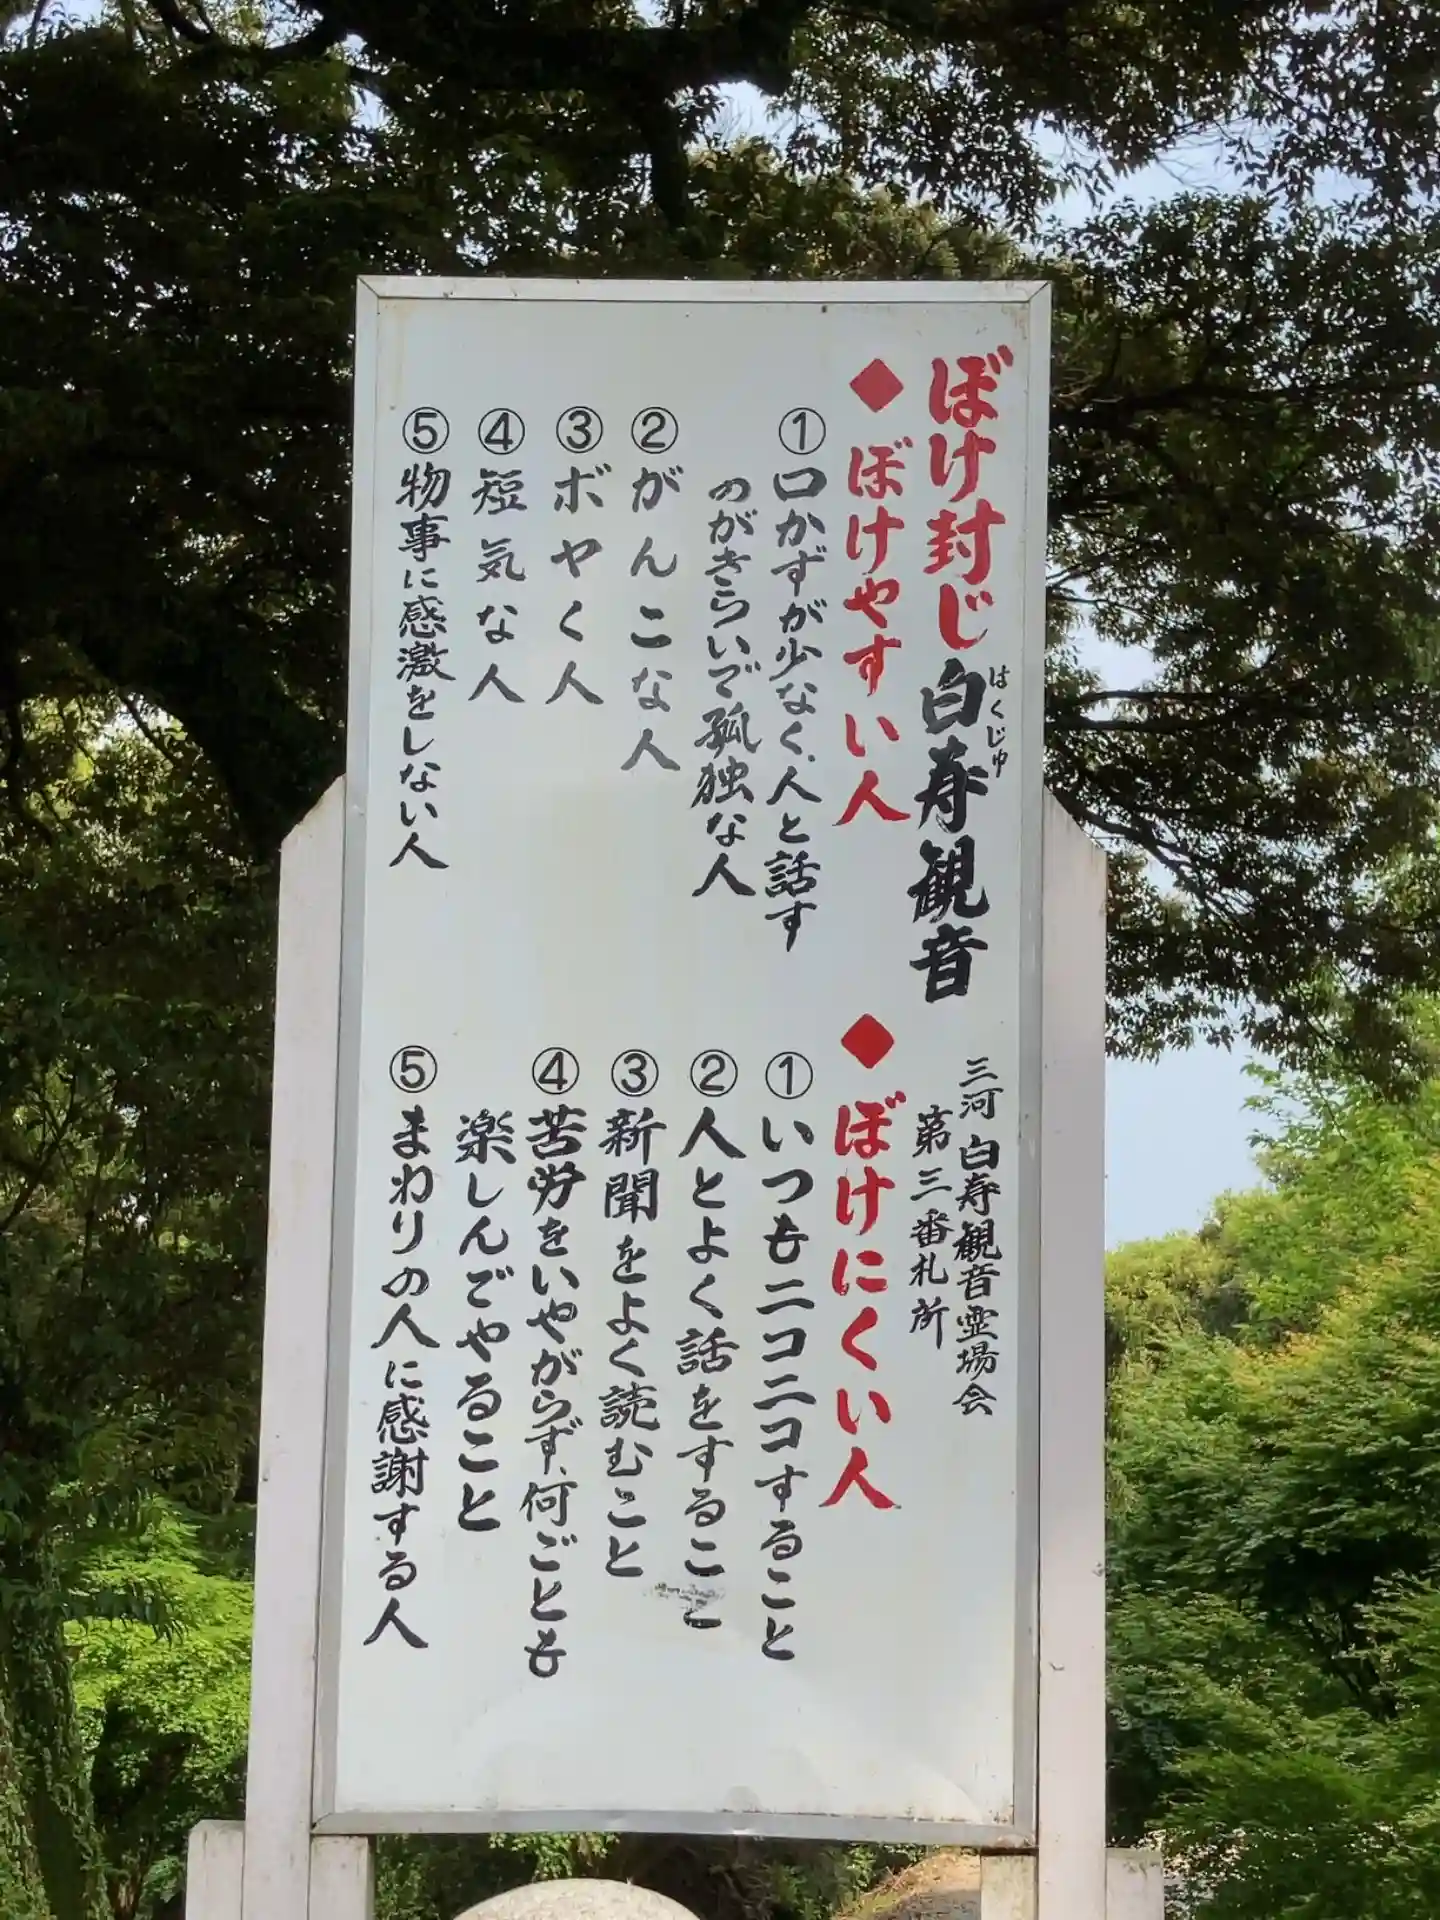 ぼけ封じ白寿観音
はくじゅ
三河白寿観音霊場会
第三番札所
◆ぼけやすい人
①口かずが少なく、人と話す
のがきらいで孤独な人
②がんこな人
③ボヤく人
④短気な人
⑤物事に感激をしない人
◆ぼけにくい人
①いつもニコニコすること
②人とよく話をすること
③新聞をよく読むこと
④苦労をいやがらず、何ごとも
楽しんでやること
⑤まわりの人に感謝する人